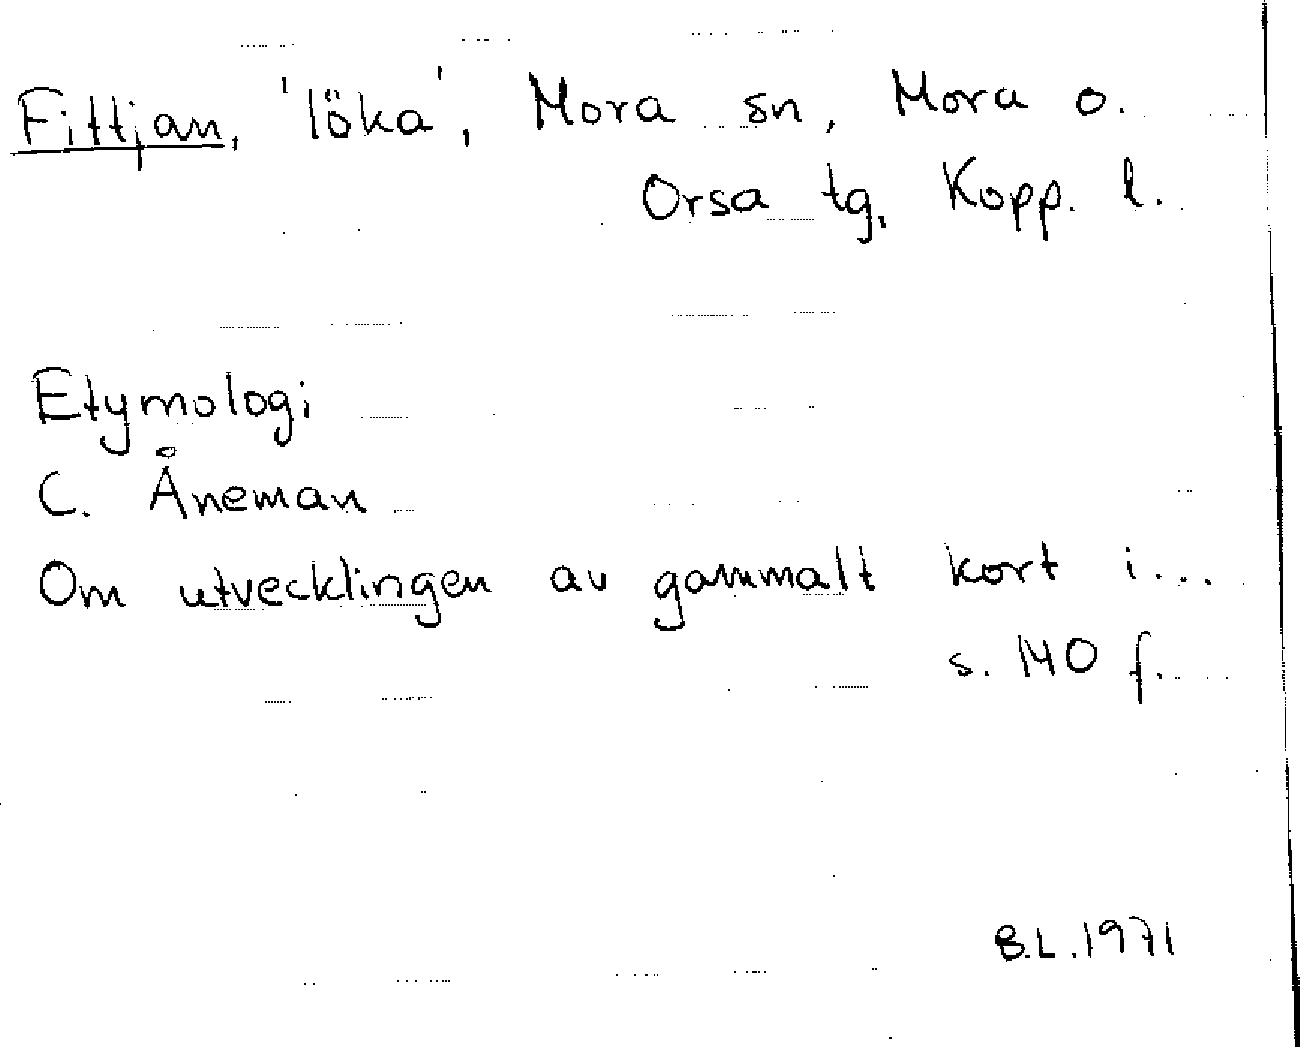 Fittjan, 'löka', Mora sn, Mora o.
Orsa tg, Kopp. l.
Etymologi
C. Åneman
Om utvecklingen av gammalt kort i...
s. 140 f.
B.L. 1971